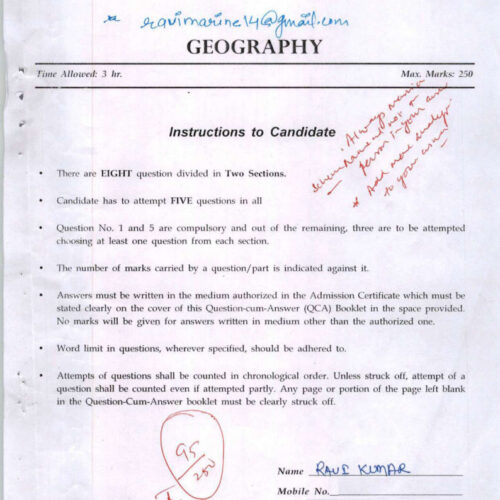 * ravimarine14@gmail.com
GEOGRAPHY
Time Allowed: 3 hr.
Max. Marks: 250
Instructions to Candidate
Always mention
name and not a
person in your answer
* Add more
to your
• There are EIGHT question divided in Two Sections.
• Candidate has to attempt FIVE questions in all
• Question No. 1 and 5 are compulsory and out of the remaining, three are to be attempted
choosing at least one question from each section.
• The number of marks carried by a question/part is indicated against it.
• Answers must be written in the medium authorized in the Admission Certificate which must be
stated clearly on the cover of this Question-cum-Answer (QCA) Booklet in the space provided.
No marks will be given for answers written in medium other than the authorized one.
• Word limit in questions, wherever specified, should be adhered to.
• Attempts of questions shall be counted in chronological order. Unless struck off, attempt of a
question shall be counted even if attempted partly. Any page or portion of the page left blank
in the Question-Cum-Answer booklet must be clearly struck off.
95
250
Name RAVI KUMAR
Mobile No.